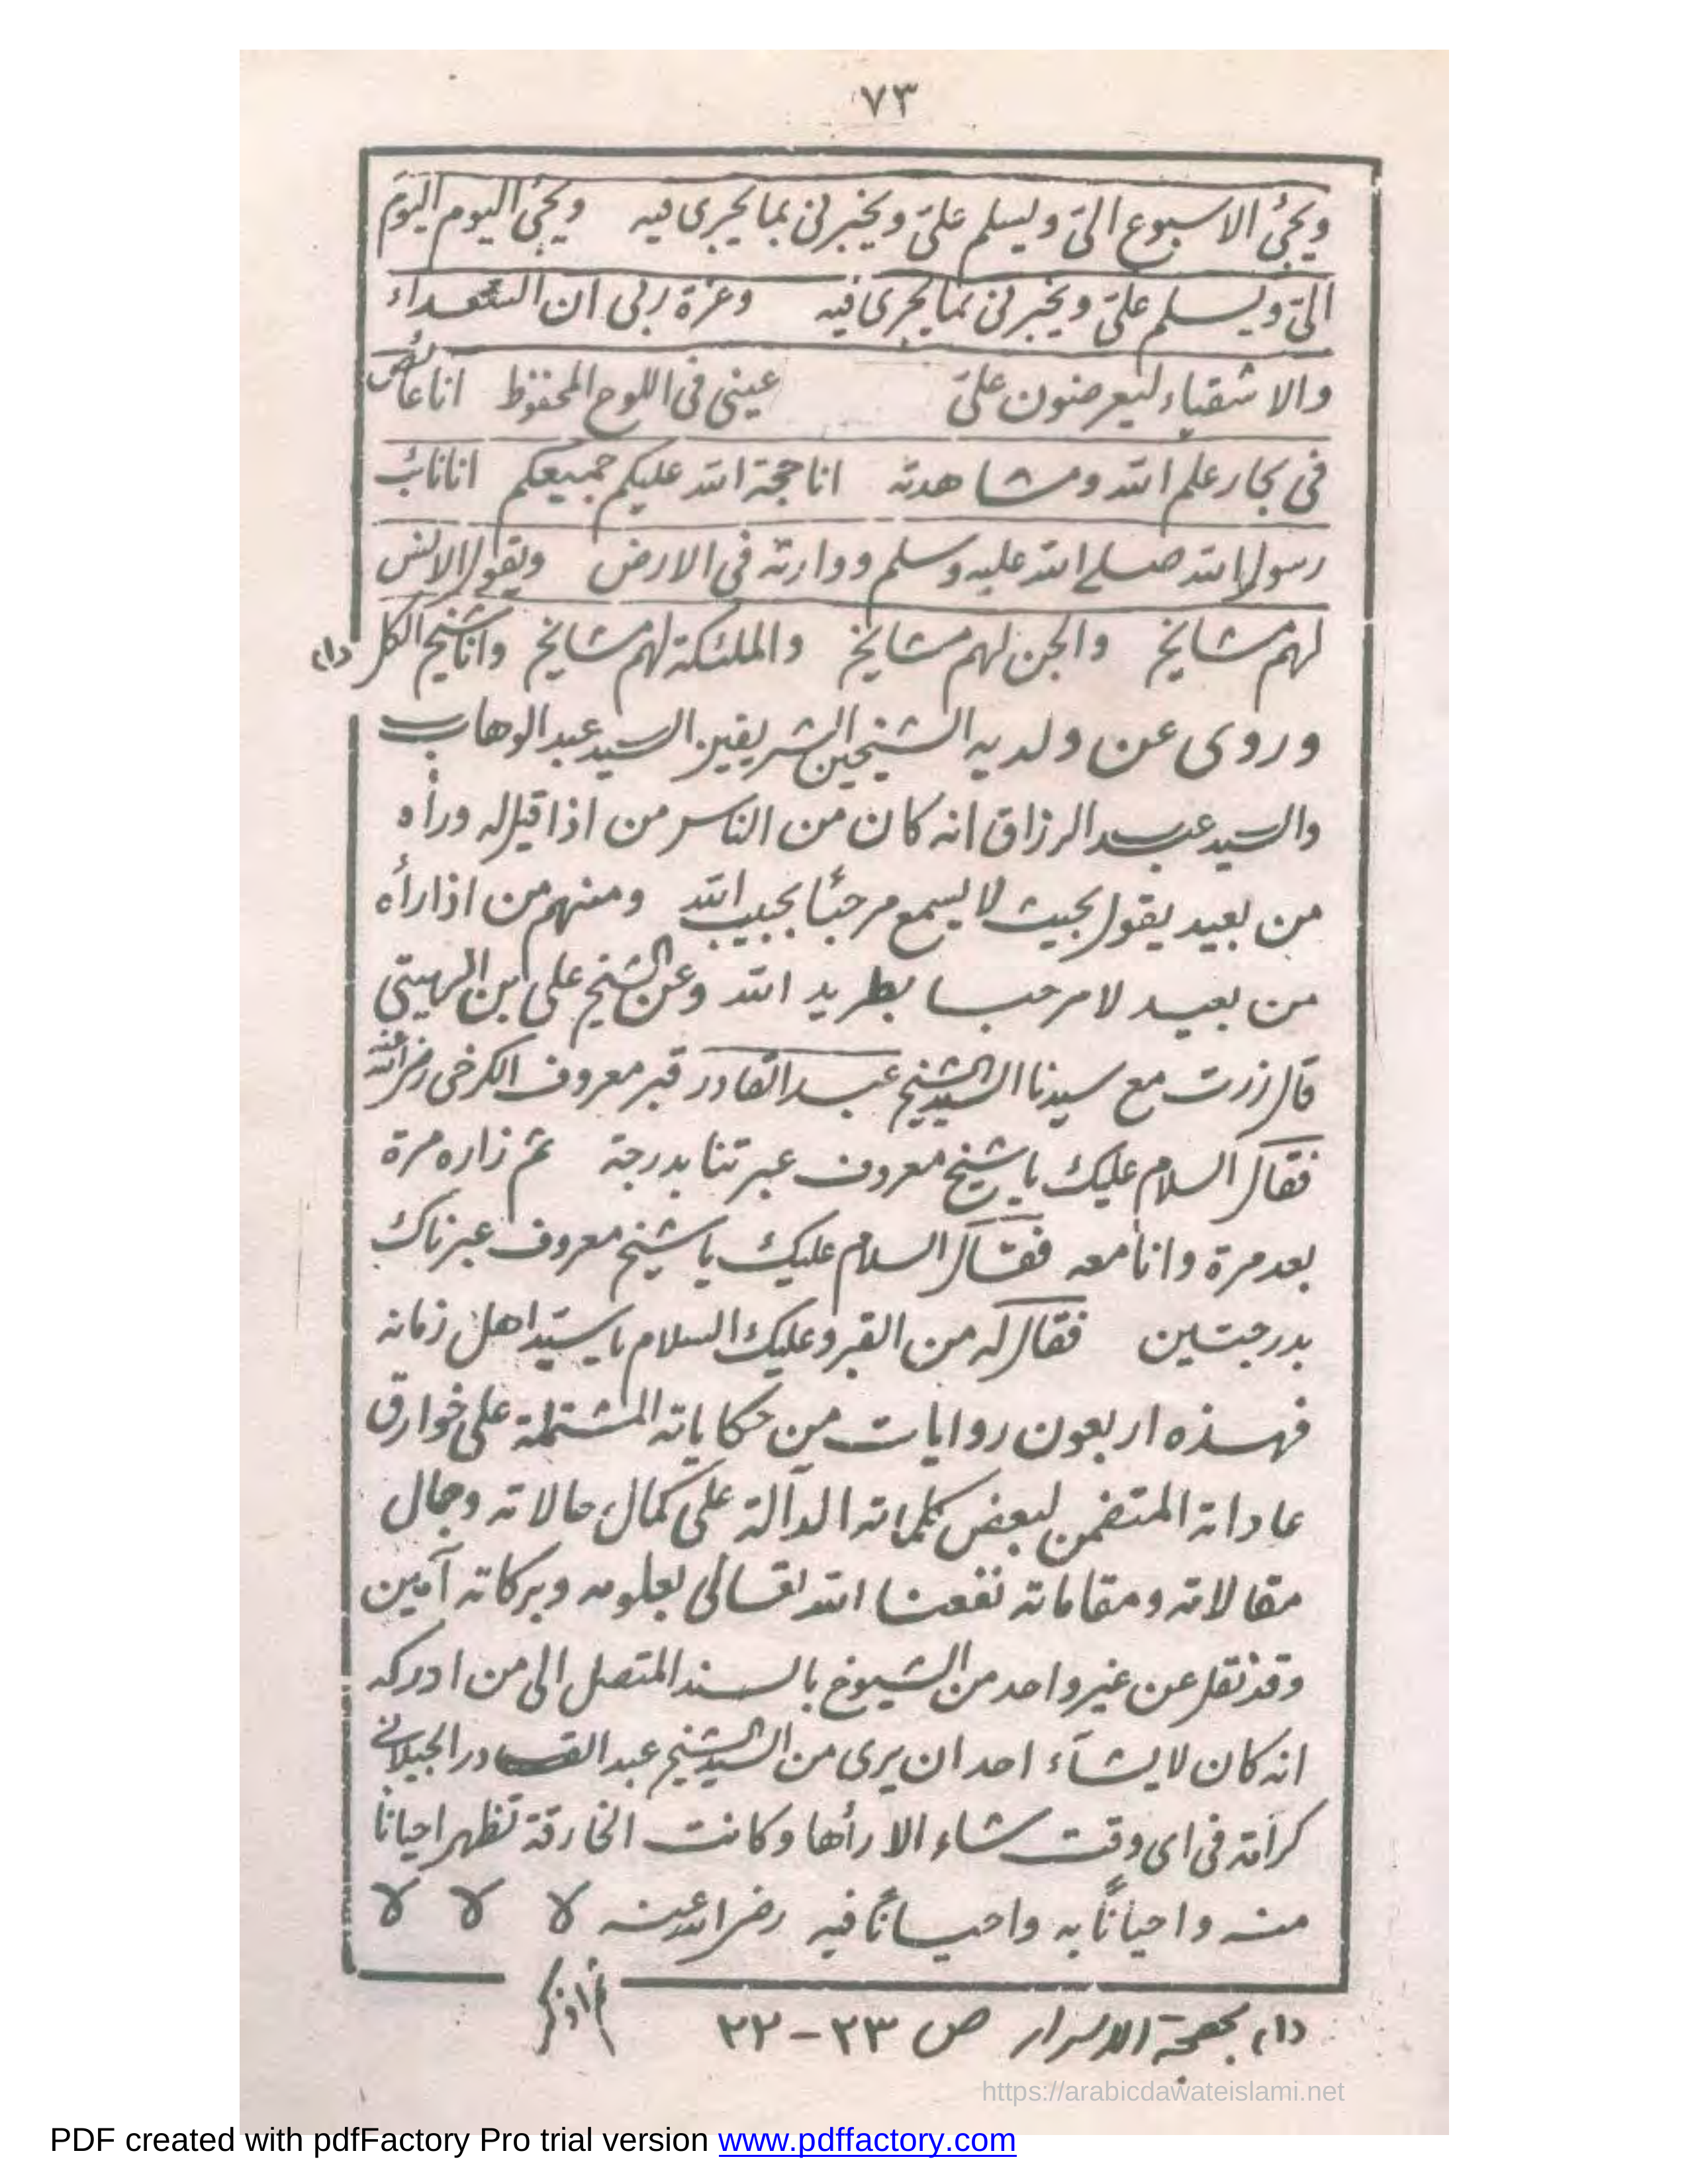 ٧٣
ويجئ الاسبوع الىّ ويسلم علىّ ويخبرنى بما يجرى فيه ويجئ اليوم اليوم
الىّ ويسلم علىّ ويخبرنى بما يجرى فيه وعزة ربى ان السعداء
والاشقياء ليعرضون علىّ عينى فى اللوح المحفوظ انا غائص
فى بحار علم الله ومشاهدته انا حجة الله عليكم جميعكم انا نائب
رسول الله صلے الله عليه وسلم ووارثه فى الارض ويقول الانس
لهم مشايخ والجن لهم مشايخ والملئكة لهم مشايخ وانا شيخ الكل (١)
وروى عن ولديه الشيخين الشريفين السيد عبد الوهاب
والسيد عبد الرزاق انه كان من الناس من اذا قيل له ورأه
من بعيد يقول بحيث لا يسمع مرحبًا بحبيب الله ومنهم من اذا رأه
من بعيد لا مرحبا بطريد الله وعن الشيخ على ابن الهيتى
قال زرت مع سيدنا السيد الشيخ عبد القادر قبر معروف الكرخى رضى الله عنه
فقال السلام عليك يا شيخ معروف عبرتنا بدرجة ثم زاره مرة
بعد مرة وانا معه فقال السلام عليك يا شيخ معروف عبرناك
بدرجتين فقال له من القبر وعليك السلام يا سيّد اهل زمانه
فهذه اربعون روايات من حكاياته المشتملة على خوارق
عاداته المتضمن لبعض كلماته الدآلة على كمال حالاته وجمال
مقالاته ومقاماته نفعنا الله تعالى بعلومه وبركاته آمين
وقد نقل عن غير واحد من الشيوخ بالسند المتصل الى من ادركه
انه كان لا يشآء احد ان يرى من السيد الشيخ عبد القادر الجيلانى
كرامة فى اى وقت شاء الا رأها وكانت الخارقة تظهر احيانًا
منه واحيانًا به واحيانًا فيه رضى الله عنه لا لا لا
(١) بهجة الاسرار ص ٢٣-٢٢
https://arabicdawateislami.net
PDF created with pdfFactory Pro trial version www.pdffactory.com